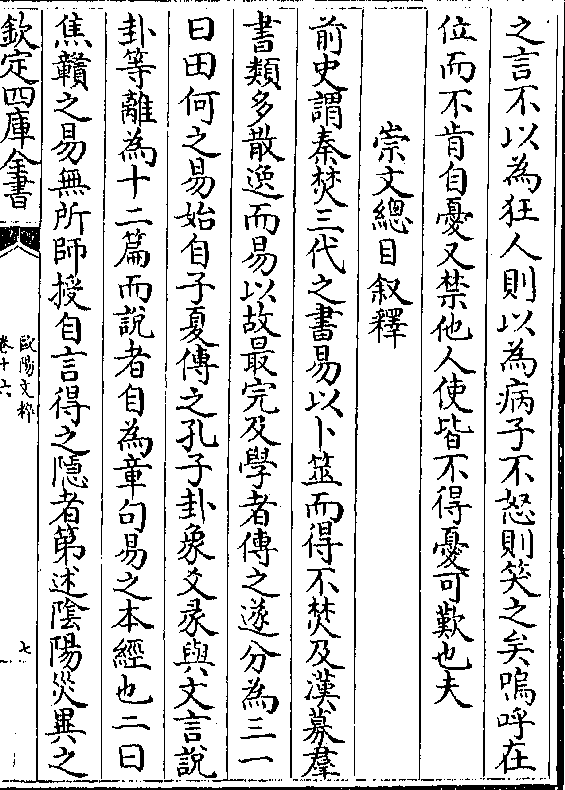 之言不以為狂人則以為病子不怒則笑之矣嗚呼在
位而不肯自憂又禁他人使皆不得憂可歎也夫
崇文總目叙釋
前史謂秦焚三代之書易以卜筮而得不焚及漢募羣
書類多散逸而易以故最完及學者傳之遂分為三一
曰田何之易始自子夏傳之孔子卦象爻彖與文言說
卦等離為十二篇而說者自為章句易之本經也二曰
焦贛之易無所師授自言得之隱者第述陰陽災異之
欽定四庫全書
歐陽文粹
卷十六
七